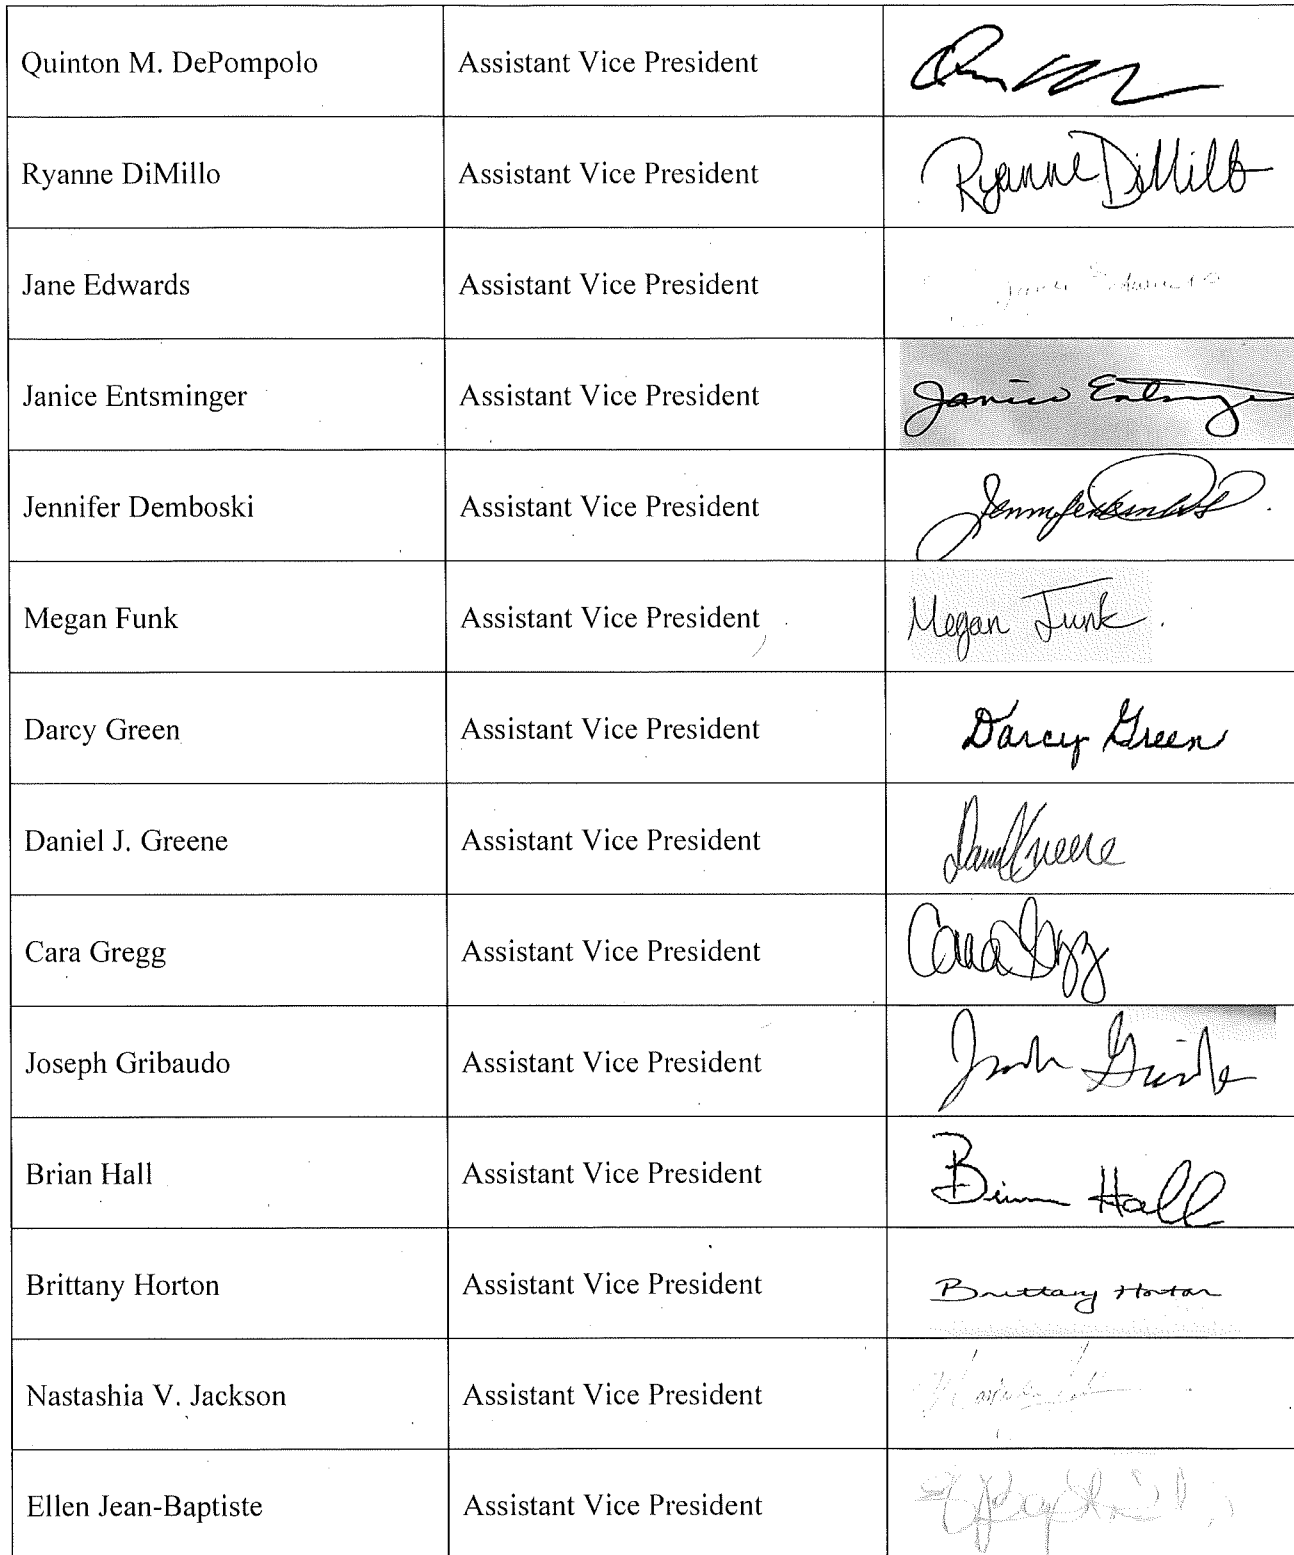 Quinton M. DePompolo Assistant Vice President
Ryanne DiMillo Assistant Vice President Ryanne DiMillo
Jane Edwards Assistant Vice President
Janice Entsminger Assistant Vice President Janice
Jennifer Demboski Assistant Vice President Jennifer
Megan Funk Assistant Vice President Megan Funk.
Darcy Green Assistant Vice President Darcy Green
Daniel J. Greene Assistant Vice President Greene
Cara Gregg Assistant Vice President Cara Gregg
Joseph Gribaudo Assistant Vice President
Brian Hall Assistant Vice President Brian Hall
Brittany Horton Assistant Vice President Brittany Horton
Nastashia V. Jackson Assistant Vice President
Ellen Jean-Baptiste Assistant Vice President